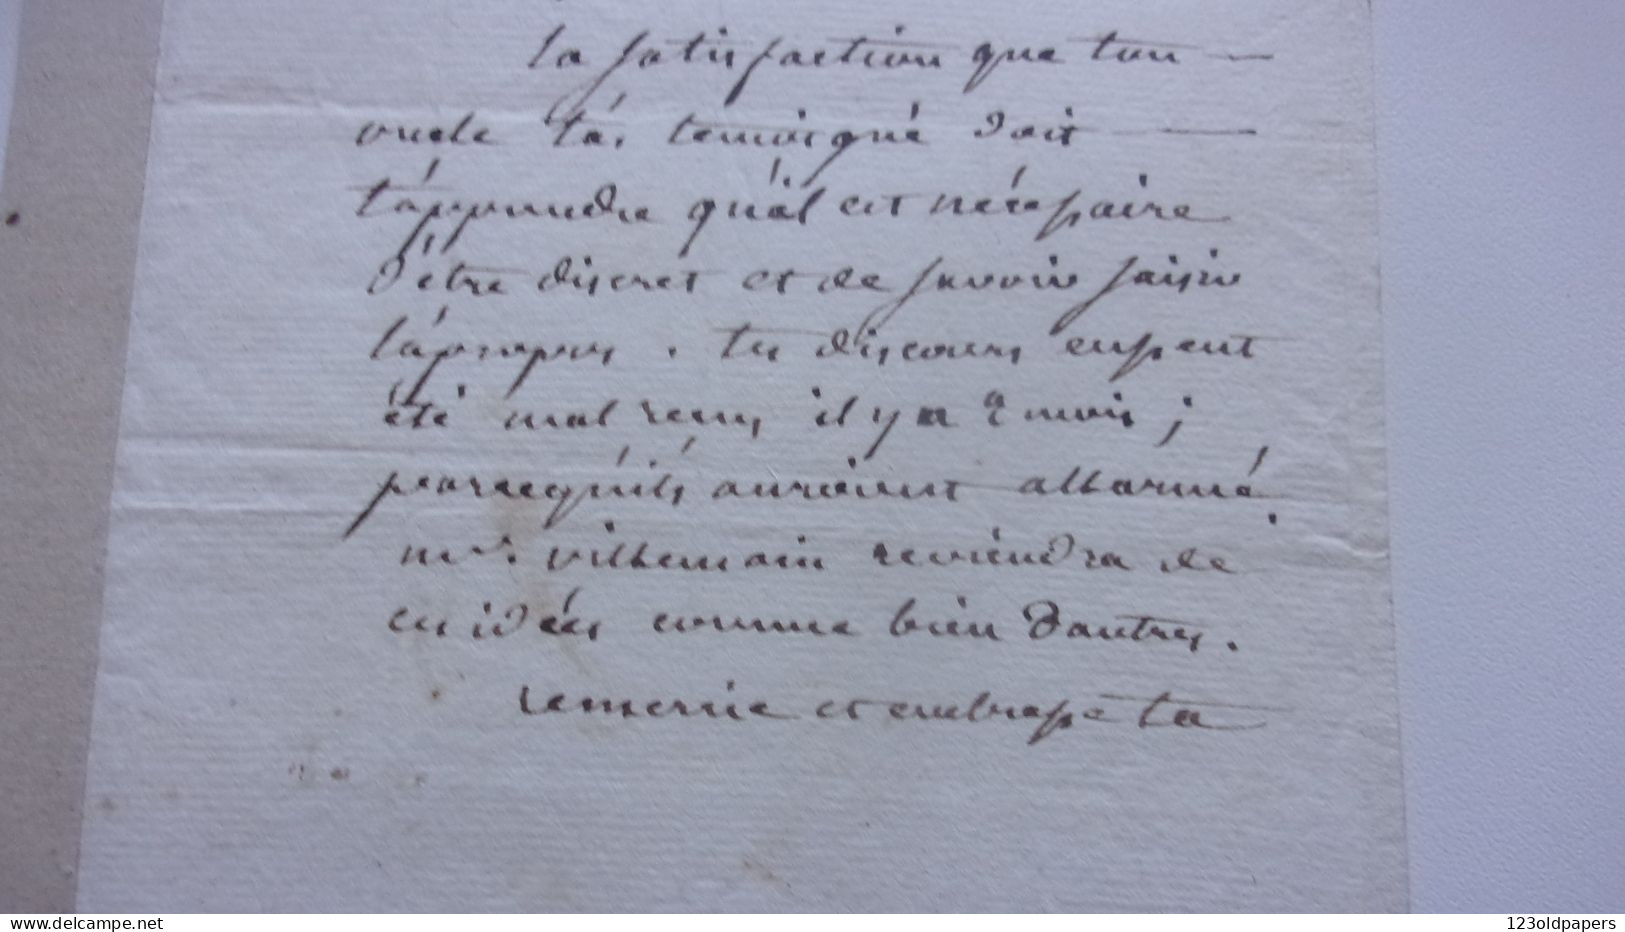 la satisfaction que ton —
oncle t'a, temoigné doit —
t'apprendre qu'il est nécessaire
d'être discret et de savoir saisir
l'apropos. tes discours eussent
été mal recus, il y a 2 mois ;
parcequ'ils auroient allarmé.
mr. villemain reviendra de
ces idées comme bien d'autres.
remercie et embrasse ta
delcampe.net
123oldpapers